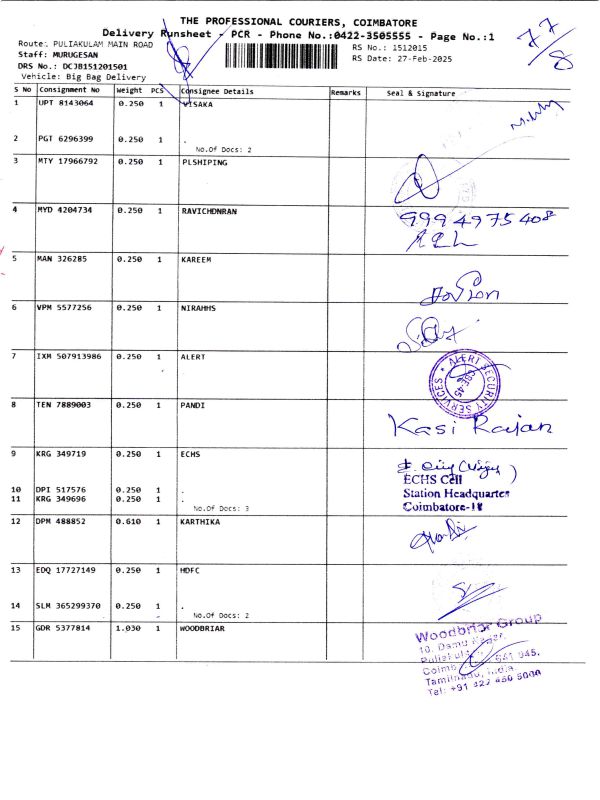 THE PROFESSIONAL COURIERS, COIMBATORE
Delivery Runsheet - PCR - Phone No.:0422-3505555 - Page No.:1
77/8
Route: PULIAKULAM MAIN ROAD
Staff: MURUGESAN
DRS No.: DCJB151201501
Vehicle: Big Bag Delivery
RS No.: 1512015
RS Date: 27-Feb-2025
S No Consignment No Weight PCS Consignee Details Remarks Seal & Signature
1 UPT 8143064 0.250 1 VISAKA
2 PGT 6296399 0.250 1 .
No.Of Docs: 2
3 MTY 17966792 0.250 1 PLSHIPING
4 MYD 4204734 0.250 1 RAVICHDNRAN
9994975408
5 MAN 326285 0.250 1 KAREEM
6 VPM 5577256 0.250 1 NIRAHHS
7 IXM 507913986 0.250 1 ALERT
ALERT SECURITY SERVICES
CBE-45
8 TEN 7889003 0.250 1 PANDI
Kasi Rajan
9 KRG 349719 0.250 1 ECHS
10 DPI 517576 0.250 1 .
11 KRG 349696 0.250 1 .
No.Of Docs: 3
ECHS Cell
Station Headquarter
Coimbatore-18
12 DPM 488852 0.610 1 KARTHIKA
13 EDQ 17727149 0.250 1 HDFC
14 SLM 365299370 0.250 1 .
No.Of Docs: 2
15 GDR 5377814 1.030 1 WOODBRIAR
Woodbriar Group
10, Damu Nagar,
641 045.
Tamilnadu, India.